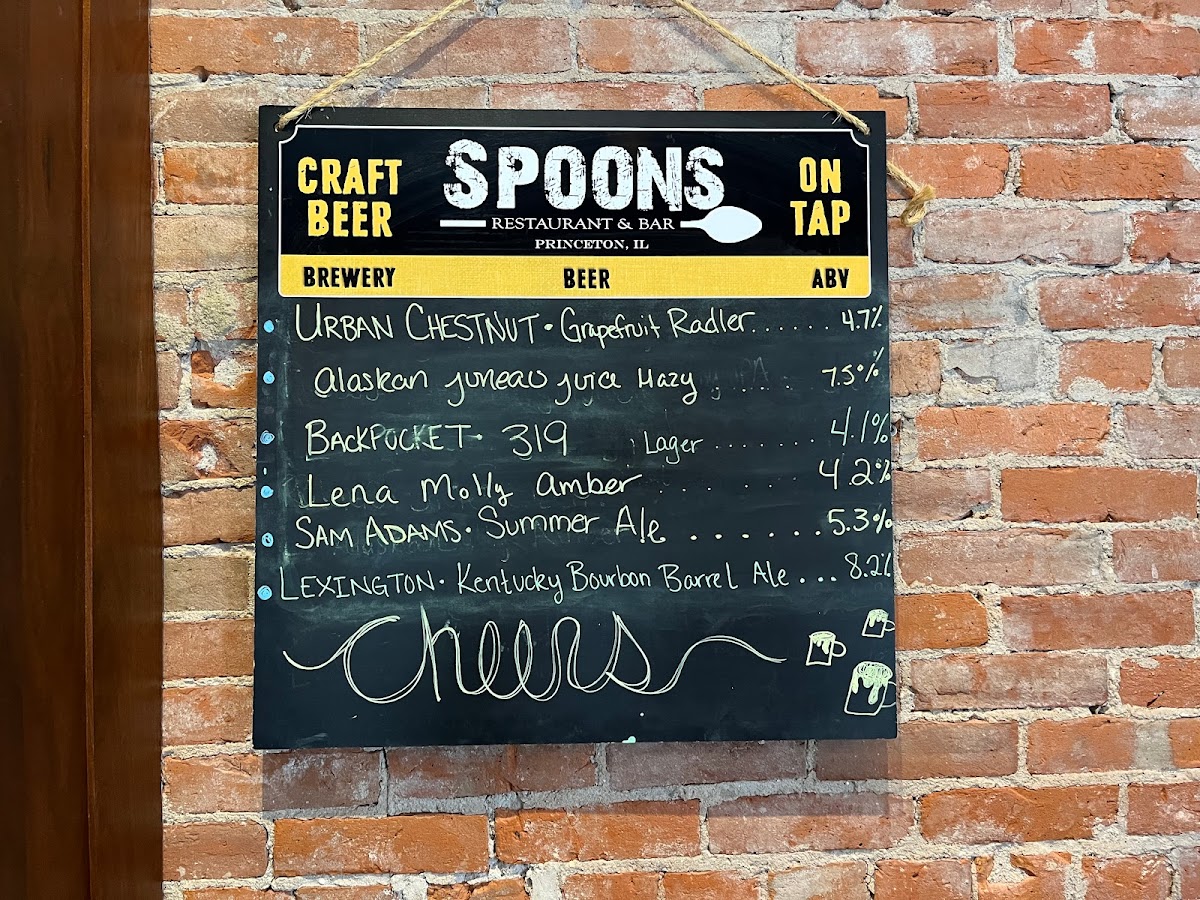 CRAFT BEER
SPOONS
RESTAURANT & BAR
PRINCETON, IL
ON TAP
BREWERY BEER ABV
URBAN CHESTNUT • Grapefruit Radler...... 4.7%
Alaskan Juneau Juice Hazy ..... 7.5%
BACKPOCKET • 319 Lager ....... 4.1%
Lena Molly Amber ..... 4.2%
SAM ADAMS • Summer Ale .......5.3%
LEXINGTON • Kentucky Bourbon Barrel Ale ... 8.2%
Cheers